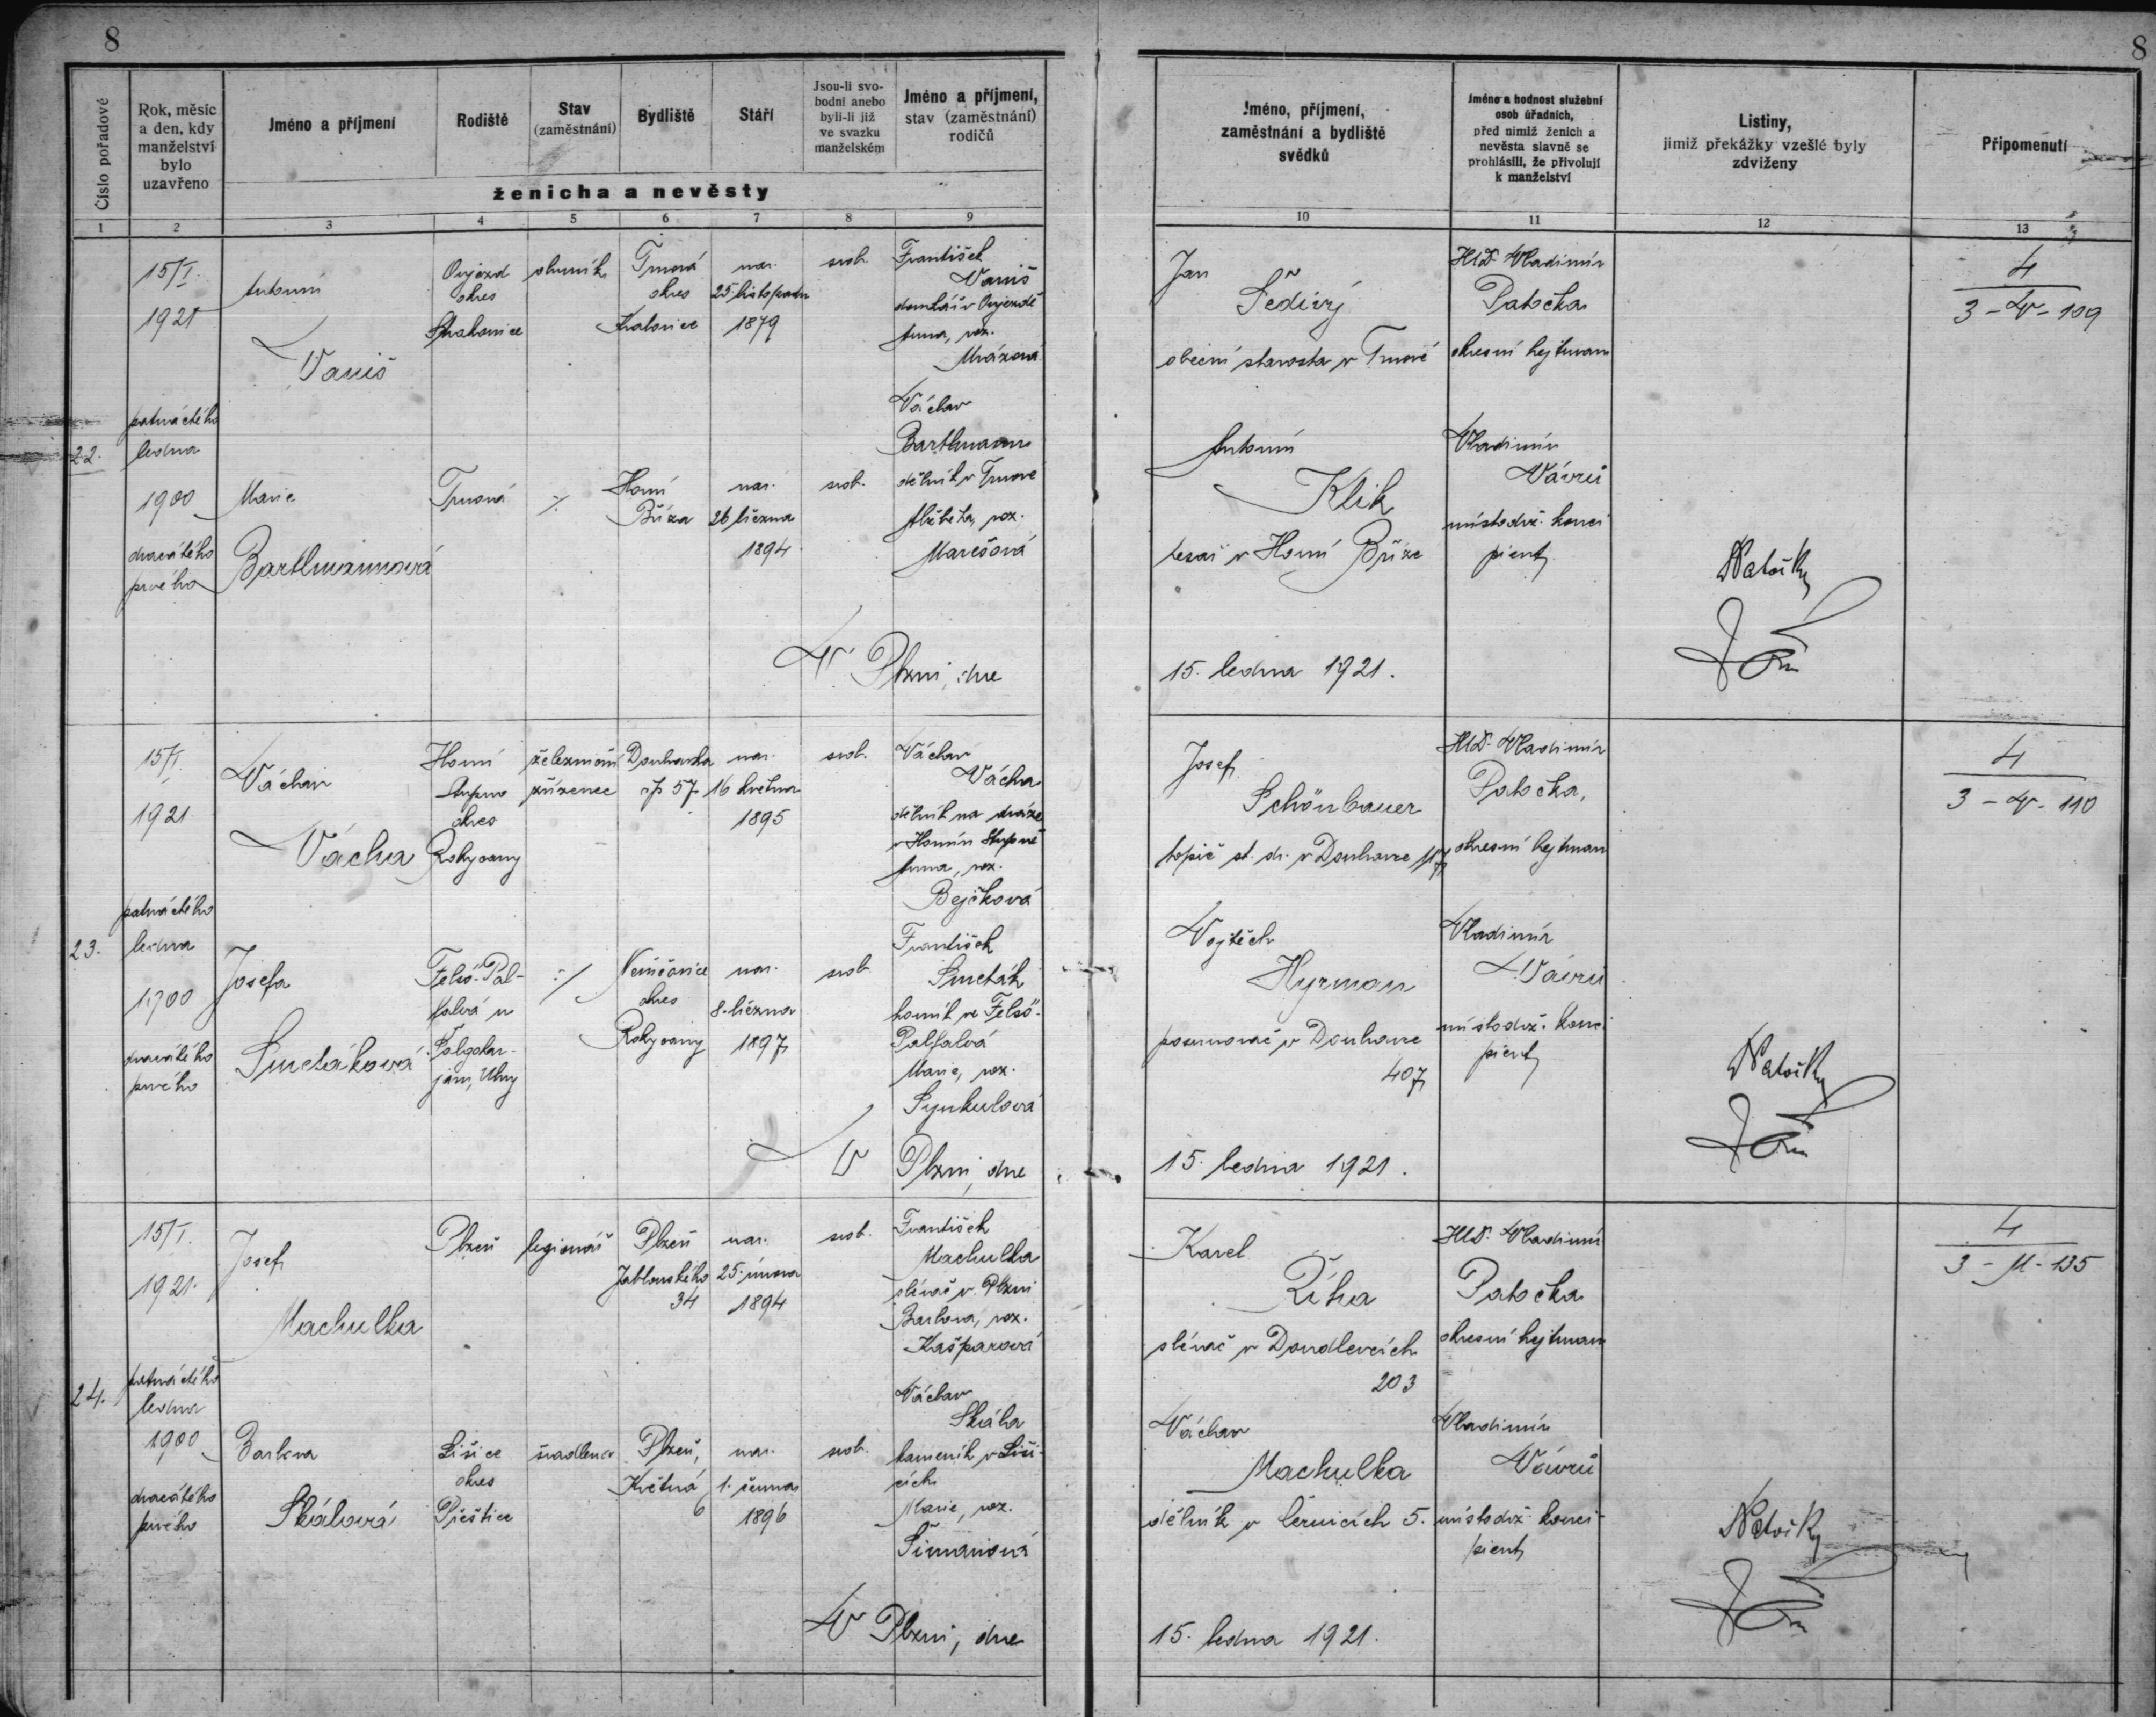 8
8
Číslo pořadové
Rok, měsíc a den, kdy manželství bylo uzavřeno
Jméno a příjmení
Rodiště
Stav (zaměstnání)
Bydliště
Stáří
Jsou-li svobodni anebo byli-li již ve svazku manželském
Jméno a příjmení, stav (zaměstnání) rodičů
ženicha a nevěsty
Jméno, příjmení, zaměstnání a bydliště svědků
Jméno a hodnost služební osob úředních, před nimiž ženich a nevěsta slavně se prohlásili, že přivolují k manželství
Listiny, jimiž překážky vzešlé byly zdviženy
Připomenutí
1 2 3 4 5 6 7 8 9 10 11 12 13
22.
15/I.
1921
patnáctého
ledna
1900
dvacátého
prvého
Antonín
Vaniš
Oujezd
okres
Strakonice
Trnová
okres
Kralovice
nar.
25. listopadu
1879
svob.
František
Vaniš
domkář v Oujezdě
Anna, roz.
Mrázová
Marie
Bartlmannová
Trnová
Horní
Bříza
nar.
26 března
1894
svob.
Václav
Bartlmann
dělník v Trnové
Alžběta, roz.
Marešová
Jan
Šedivý
obecní starosta v Trnové
Antonín
Klik
tesař v Horní Bříze
JUDr Vladimír
Patočka
okresní hejtman
Vladimír
Vávrů
místodrž. konci
pient
4
3 - V - 109
V Plzni, dne
15. ledna 1921.
23.
15/I.
1921
patnáctého
ledna
1900
dvacátého
prvého
Václav
Vácha
Horní
Stupno
okres
Rokycany
železniční
zřízenec
Doubravka
čp 57
nar.
16 května
1895
svob.
Václav
Vácha
dělník na dráze
v Horním Stupně
Anna, roz.
Bejčková
Josefa
Smetáková
Felsö-Pal-
falvá u
Šalgotar-
jánu, Uhry
Němčovice
okres
Rokycany
nar.
8. března
1897
svob.
František
Smeták
horník ve Felsö-
Palfalvá
Marie, roz.
Synkulová
Josef
Schönbauer
topič st. dr. v Doubravce 117
Vojtěch
Hyrman
posunovač v Doubravce
407
JUDr. Vladimír
Patočka,
okresní hejtman
Vladimír
Vávrů
místodrž. konci
pient
4
3 - V - 110
V Plzni, dne
15. ledna 1921.
24.
15/I.
1921.
patnáctého
ledna
1900
dvacátého
prvého
Josef
Machulka
Plzeň
legionář
Plzeň
Jablonského
34
nar.
25. února
1894
svob.
František
Machulka
slévač v Plzni
Barbora, roz.
Kašparová
Barbora
Skálová
Lišice
okres
Přeštice
švadlena
Plzeň,
Květná
6
nar.
1. června
1896
svob.
Václav
Skála
kameník v Liši-
cích
Marie, roz.
Šimanová
Karel
Říha
slévač v Doudlevcích
203
Václav
Machulka
dělník v Černicích 5.
JUDr. Vladimír
Patočka
okresní hejtman
Vladimír
Vávrů
místodrž. konci-
pient
4
3 - M - 135
V Plzni, dne
15. ledna 1921.